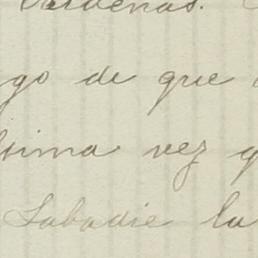 Cárdenas.
go de que
sima vez q
Labadie la